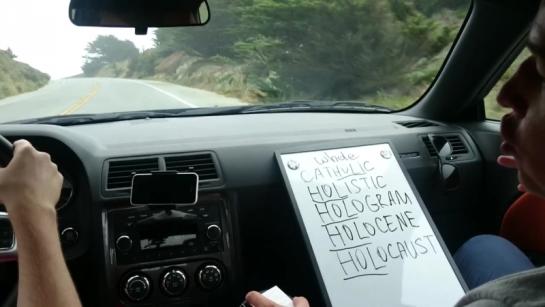 Whole
CATHOLIC
HOLISTIC
HOLOGRAM
HOLOCENE
HOLOCAUST